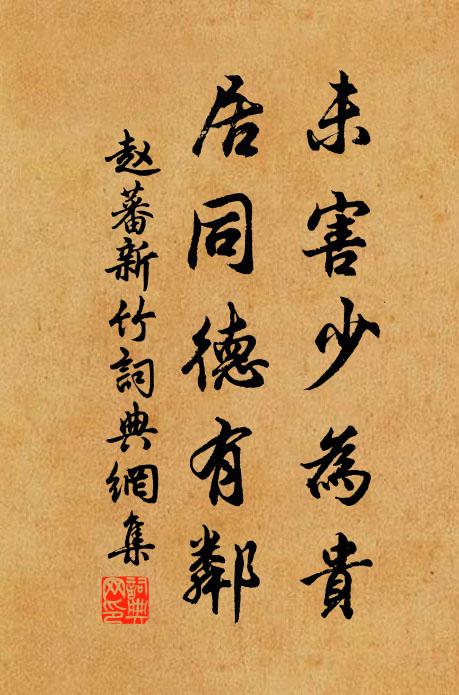 未害少為貴
居同德有鄰
赵蕃新竹詞典網集
詞典網印